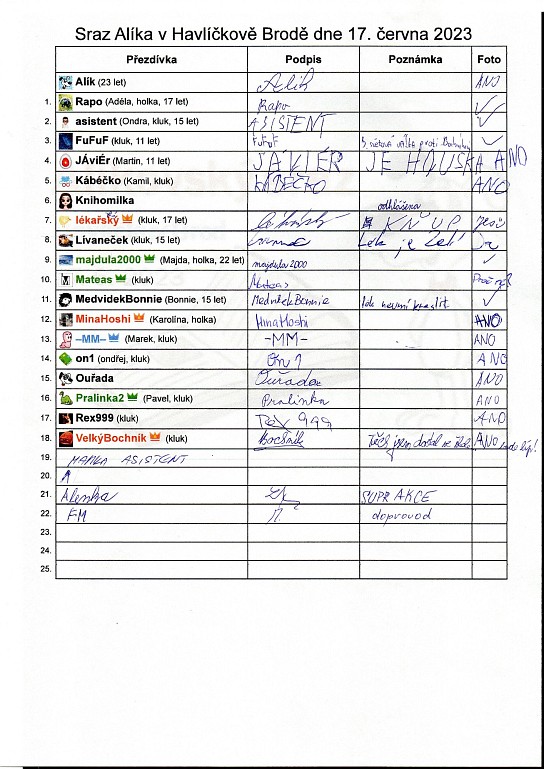 Sraz Alíka v Havlíčkově Brodě dne 17. června 2023
Přezdívka Podpis Poznámka Foto
Alík (23 let) Alík ANO
1. Rapo (Adéla, holka, 17 let) Rapo
2. asistent (Ondra, kluk, 15 let) ASISTENT
3. FuFuF (kluk, 11 let) FuFuF
4. JÁViÉr (Martin, 11 let) JÁVIÉR JE HOUSKA ANO
5. Kábéčko (Kamil, kluk) KÁBÉČKO ANO
6. Knihomilka odhlášena
7. lékařský (kluk, 17 let) KNUP
8. Lívaneček (kluk, 15 let) je
9. majdula2000 (Majda, holka, 22 let) majdula2000
10. Mateas (kluk) Mateas Proč ne?
11. MedvídekBonnie (Bonnie, 15 let) MedvídekBonnie neumí kreslit
12. MinaHoshi (Karolína, holka) MinaHoshi ANO
13. –MM– (Marek, kluk) -MM- ANO
14. on1 (ondřej, kluk) On1 ANO
15. Ouřada Ouřada ANO
16. Pralinka2 (Pavel, kluk) Pralinka ANO
17. Rex999 (kluk) Rex 999 ANO
18. VelkýBochník (kluk) Bochník jsem dostal ANO
19. MAMKA ASISTENT
20.
21. Alenka SUPR AKCE
22. FM doprovod
23.
24.
25.